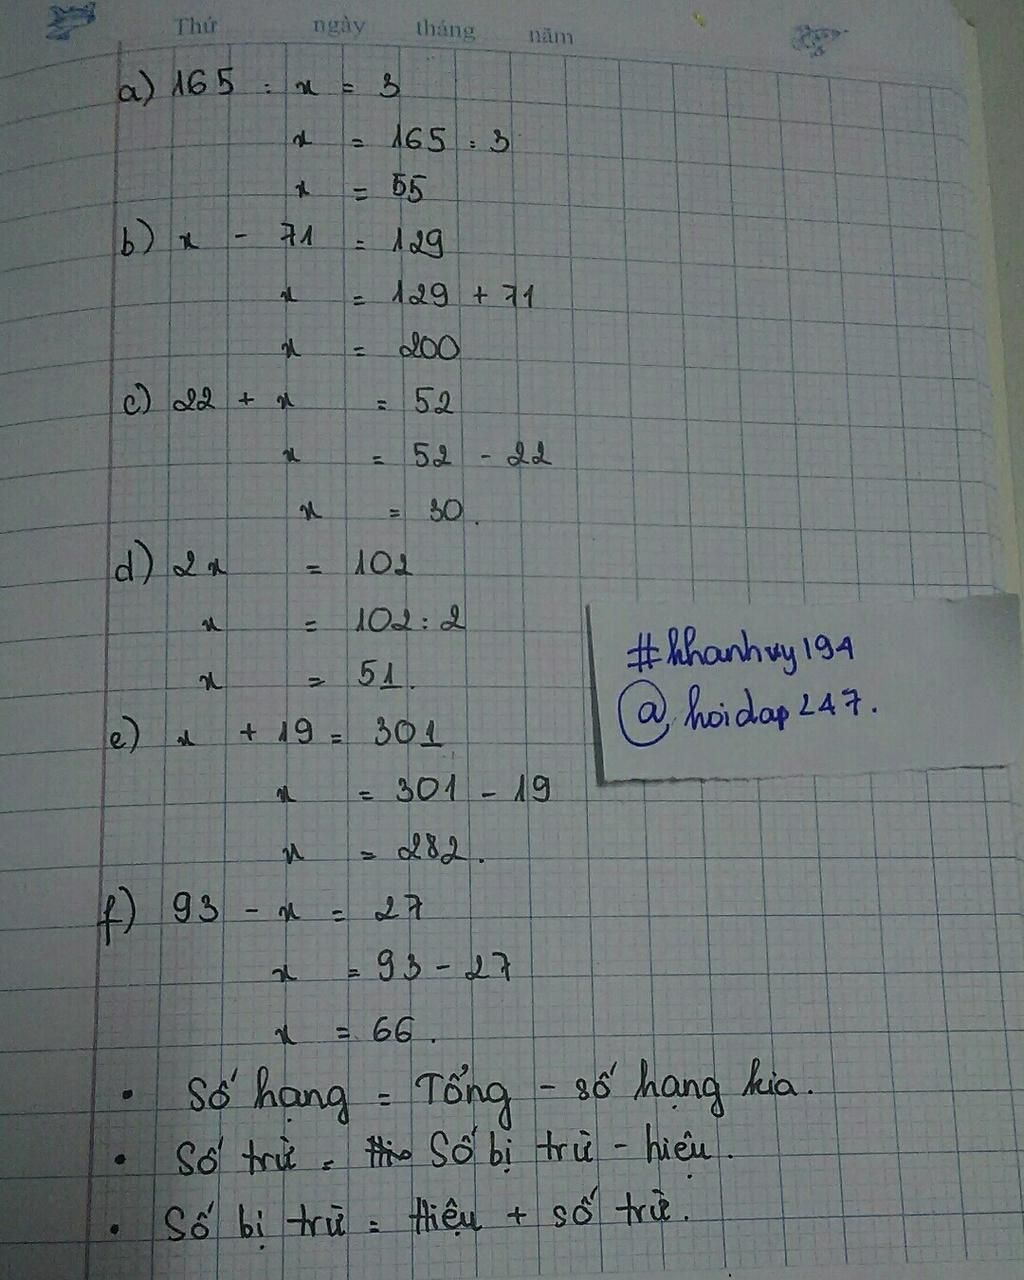 Thứ ngày tháng năm
a) 165 : x = 3
x = 165 : 3
x = 55
b) x - 71 = 129
x = 129 + 71
x = 200
c) 22 + x = 52
x = 52 - 22
x = 30.
d) 2x = 102
x = 102 : 2
x = 51.
#khanhvy194
@hoidap247.
e) x + 19 = 301
x = 301 - 19
x = 282.
f) 93 - x = 27
x = 93 - 27
x = 66.
• Số hạng = Tổng - số hạng kia.
• Số trừ = Số bị trừ - hiệu.
• Số bị trừ = Hiệu + số trừ.